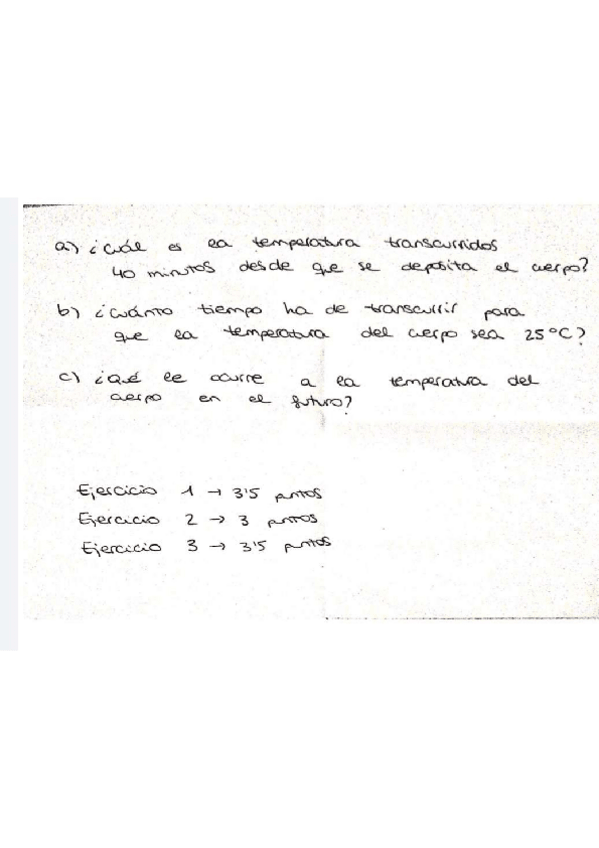 a) ¿Cuál es la temperatura transcurridos
40 minutos desde que se deposita el cuerpo?
b) ¿Cuánto tiempo ha de transcurrir para
que la temperatura del cuerpo sea 25°C?
c) ¿Qué le ocurre a la temperatura del
cuerpo en el futuro?
Ejercicio 1 → 3'5 puntos
Ejercicio 2 → 3 puntos
Ejercicio 3 → 3'5 puntos